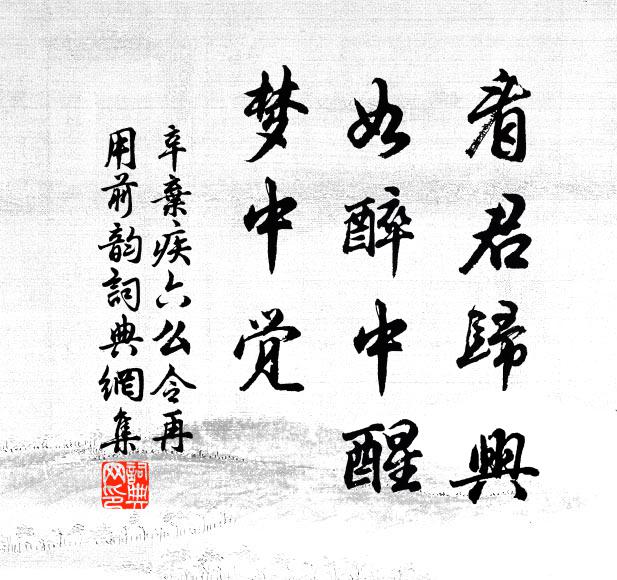 看君歸興
如醉中醒
梦中觉
辛棄疾六么令再
用前韵詞典網集
詞典
网印